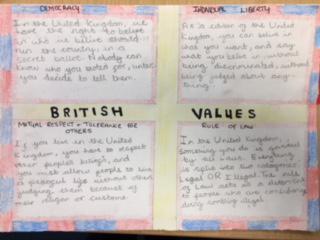 DEMOCRACY
In the United Kingdom, we
have the right to
in who we believe should
run the country, in a
secret ballot. Nobody can
know who you voted for, unless
you decide to tell them.
INDIVIDUAL LIBERTY
As a citizen of the United
Kingdom, you can believe in
what you want, and say
what you believe in without
being discriminated, without
being judged about any-
thing.
BRITISH
VALUES
MUTUAL RESPECT + TOLERANCE FOR
OTHERS
If you live in the United
Kingdom, you have to respect
other people's beliefs, and
you must allow people to live
a peaceful life without other
judging them because of
their religion or customs.
RULE OF LAW
In the United Kingdom,
Something you do is governed
by all laws. Everything
is split into two categories,
Legal OR Illegal. The rule
of Law acts as a deterrent
to people who are considering
doing something illegal.